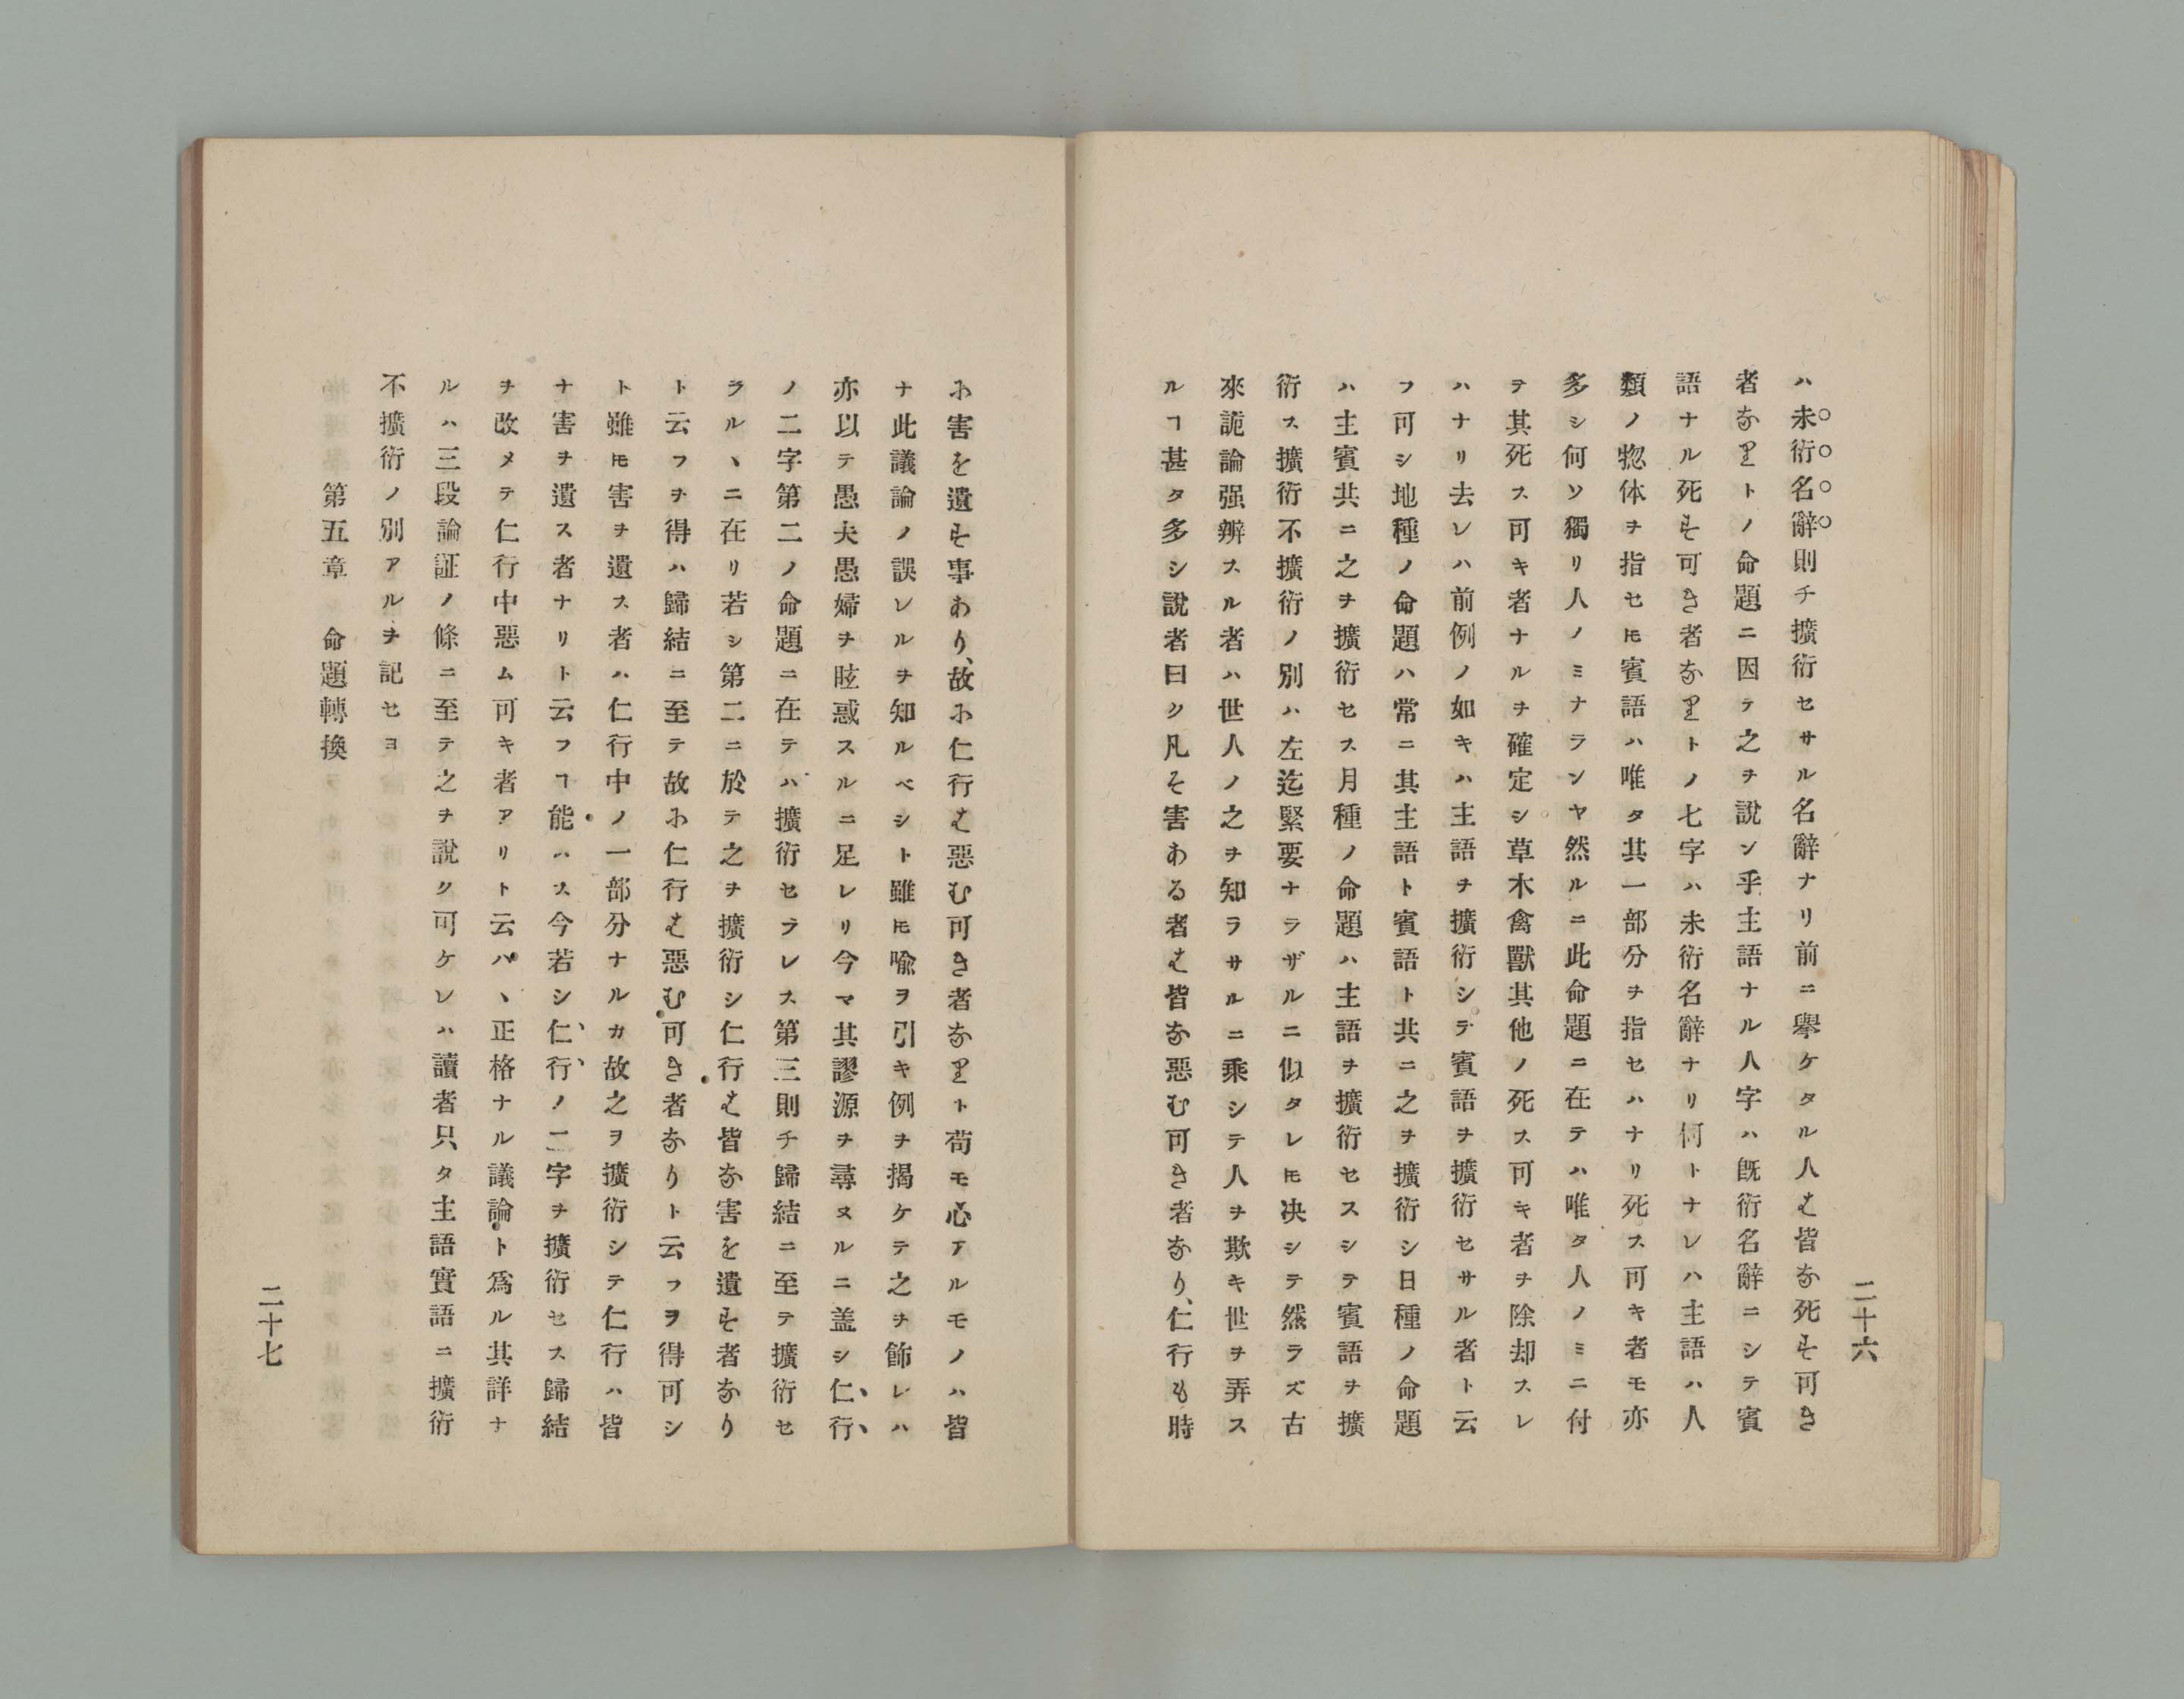 二十六
ハ未衍名辭則チ擴衍セサル名辭ナリ前ニ擧ケタル人は皆な死す可き
者なりトノ命題ニ因テ之ヲ說ン乎主語ナル人字ハ旣衍名辭ニシテ賓
語ナル死す可き者なりトノ七字ハ未衍名辭ナリ何トナレハ主語ハ人
類ノ惣体ヲ指セㇳモ賓語ハ唯タ其一部分ヲ指セハナリ死ス可キ者モ亦
多シ何ソ獨リ人ノミナランヤ然ルニ此命題ニ在テハ唯タ人ノミニ付
テ其死ス可キ者ナルヲ確定シ草木禽獸其他ノ死ス可キ者ヲ除却スレ
ハナリ去レハ前例ノ如キハ主語ヲ擴衍シテ賓語ヲ擴衍セサル者ト云
フ可シ地種ノ命題ハ常ニ其主語ト賓語ト共ニ之ヲ擴衍シ日種ノ命題
ハ主賓共ニ之ヲ擴衍セス月種ノ命題ハ主語ヲ擴衍セスシテ賓語ヲ擴
衍ス擴衍不擴衍ノ別ハ左迄緊要ナラザルニ似タレㇳモ决シテ然ラズ古
來詭論强辨スル者ハ世人ノ之ヲ知ラサルニ乘シテ人ヲ欺キ世ヲ弄ス
ルヿ甚タ多シ說者曰ク凡そ害ある者は皆な惡む可き者なり、仁行も時
に害を遺す事あり、故に仁行は惡む可き者なりト苟モ心アルモノハ皆
ナ此議論ノ誤レルヲ知ルベシト雖ㇳモ喩ヲ引キ例ヲ揭ケテ之ヲ飾レハ
亦以テ愚夫愚婦ヲ眩惑スルニ足レリ今マ其謬源ヲ尋ヌルニ盖シ仁行
ノ二字第二ノ命題ニ在テハ擴衍セラレス第三則チ歸結ニ至テ擴衍セ
ラルヽニ在リ若シ第二ニ於テ之ヲ擴衍シ仁行は皆な害を遺す者なり
ト云フヲ得ハ歸結ニ至テ故に仁行は惡む可き者なりト云フヲ得可シ
ト雖ㇳモ害ヲ遺ス者ハ仁行中ノ一部分ナルカ故之ヲ擴衍シテ仁行ハ皆
ナ害ヲ遺ス者ナリト云フヿ能ハス今若シ仁行ノ二字ヲ擴衍セス歸結
ヲ改メテ仁行中惡ム可キ者アリト云ハヽ正格ナル議論ト爲ル其詳ナ
ルハ三段論証ノ條ニ至テ之ヲ說ク可ケレハ讀者只タ主語實語ニ擴衍
不擴衍ノ別アルヲ記セヨ
第五章　命題轉換
二十七